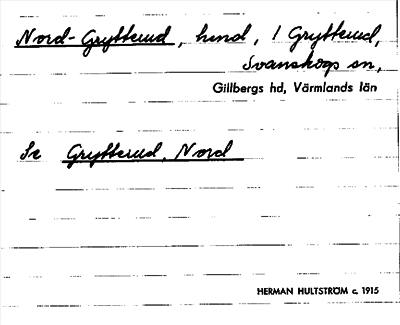 Nord-Grytterud, hmd, 1 Grytterud,
Svanskogs sn,
Gillbergs hd, Värmlands län
Se Grytterud, Nord
HERMAN HULTSTRÖM c. 1915